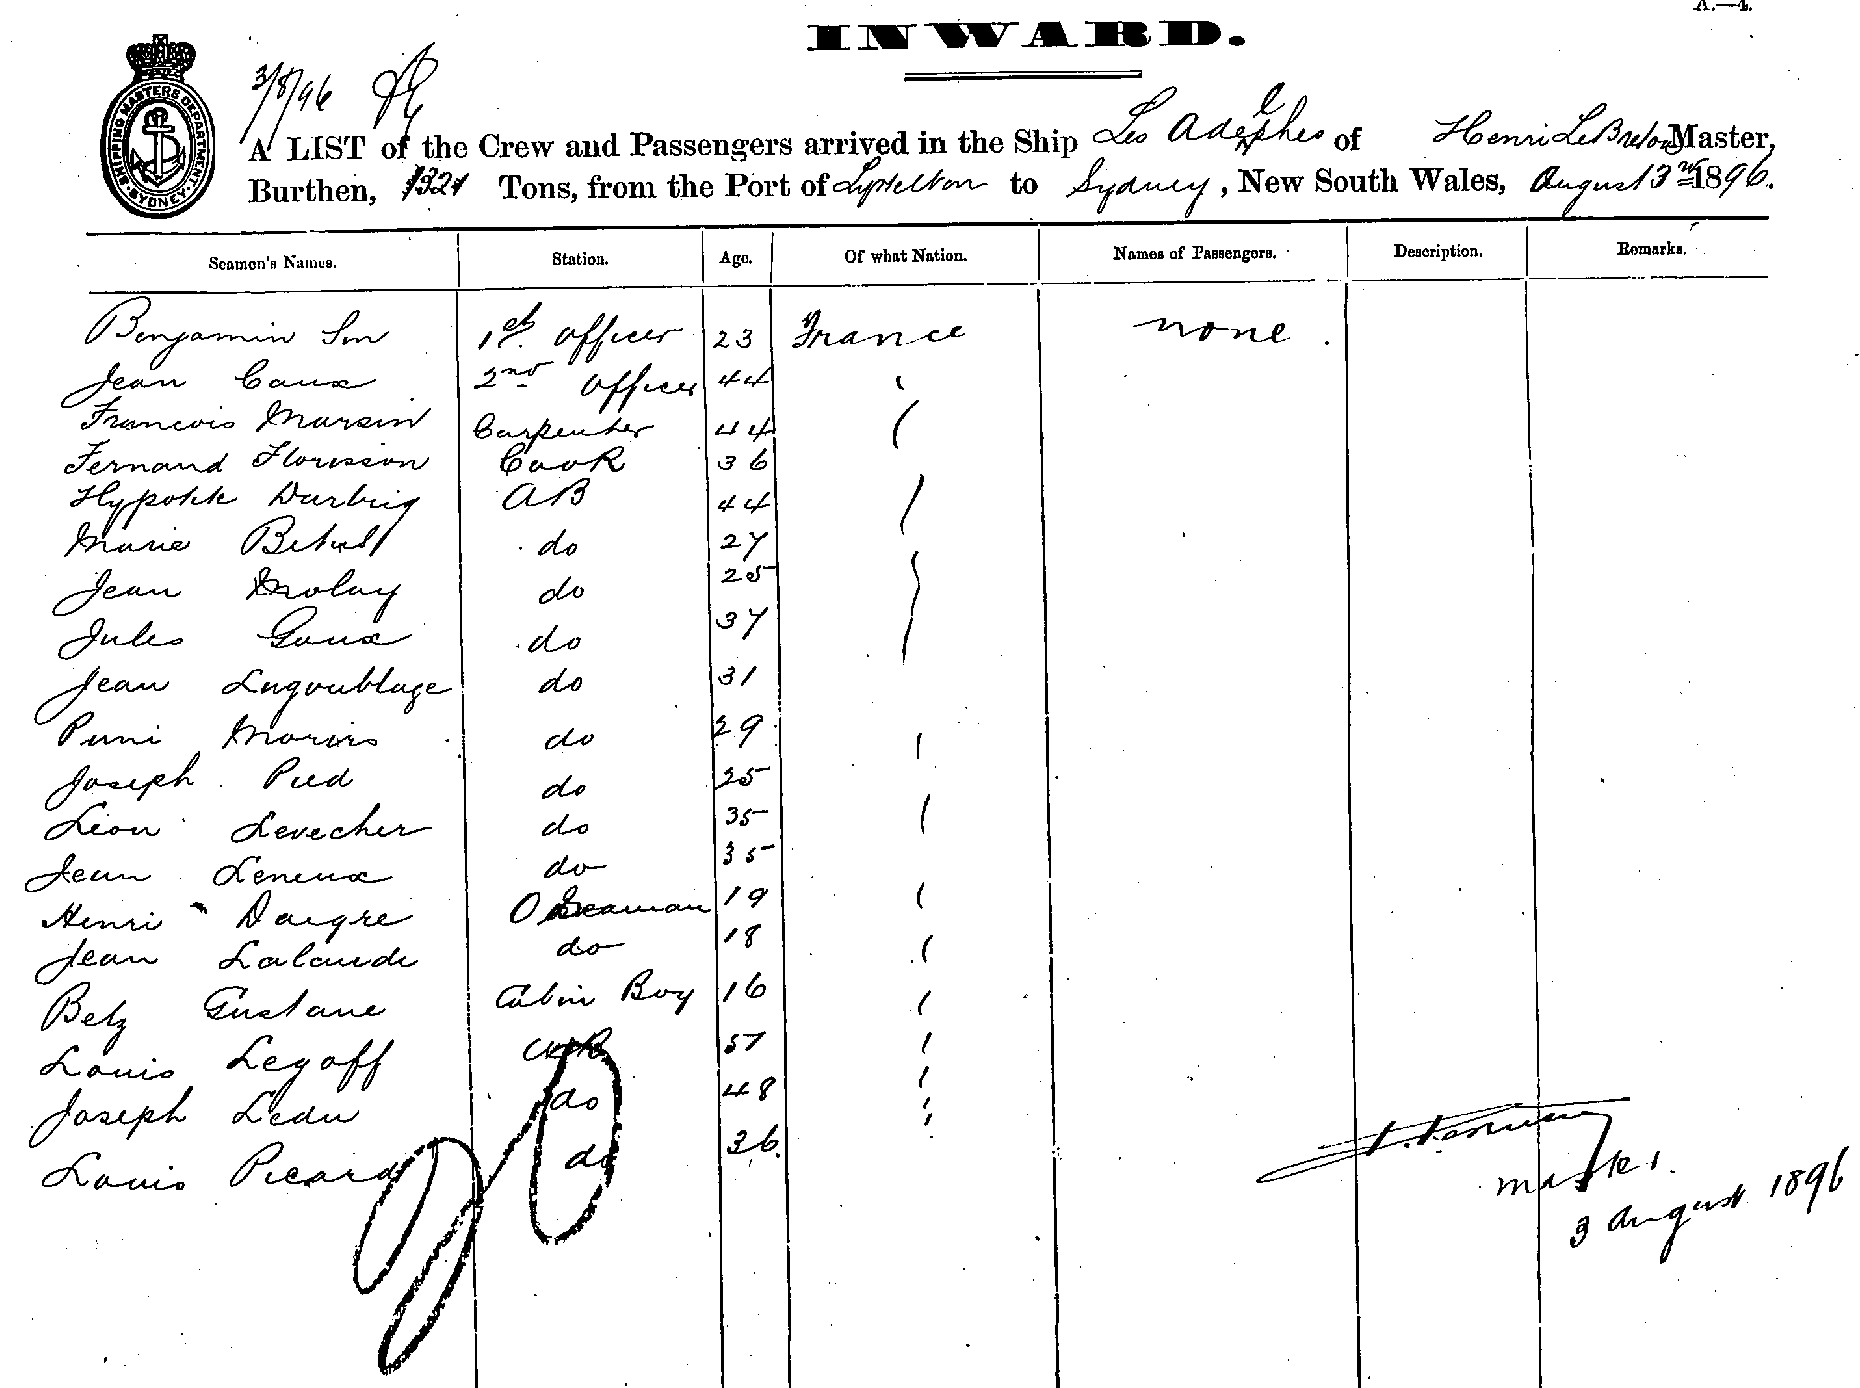 A.—4.
INWARD.
SHIPPING MASTERS DEPARTMENT SYDNEY
3/8/96
A LIST of the Crew and Passengers arrived in the Ship Les Adelphes of Henri LeBreton Master,
Burthen, 1321 Tons, from the Port of Lyttelton to Sydney, New South Wales, August 3rd 1896.
Seamen's Names. Station. Age. Of what Nation. Names of Passengers. Description. Remarks.
Benjamin 1st officer 23 France none.
Jean Caux 2nd officer 44
Francois Marsin Carpenter 44
Fernand Florisson Cook 36
AB 44
Marie do 27
Jean do 25
Jules Goux do 37
Jean Lagoublage do 31
do 29
Joseph Pied do 25
Léon Levecher do 35
Jean Leneux do 35
Henri Daigre O Seaman 19
Jean Lalande do 18
Betz Gustave Cabin Boy 16
Louis Legoff 57
Joseph Ledu do 48
Louis Picard do 36.
master.
3 August 1896